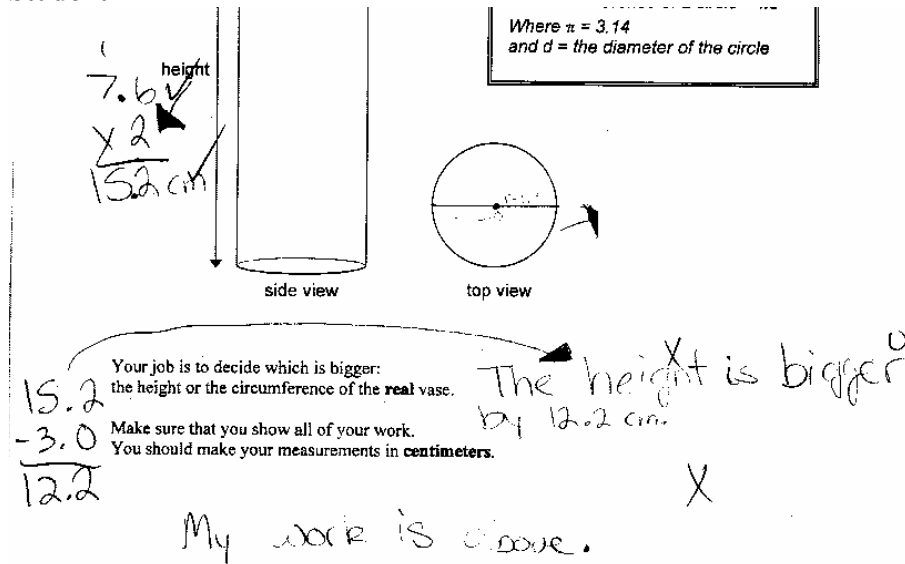 Where π = 3.14
and d = the diameter of the circle
height
7.6
x 2
15.2 cm
side view
top view
Your job is to decide which is bigger:
the height or the circumference of the real vase.
Make sure that you show all of your work.
You should make your measurements in centimeters.
15.2
-3.0
12.2
The height is bigger
by 12.2 cm.
X
My work is above.